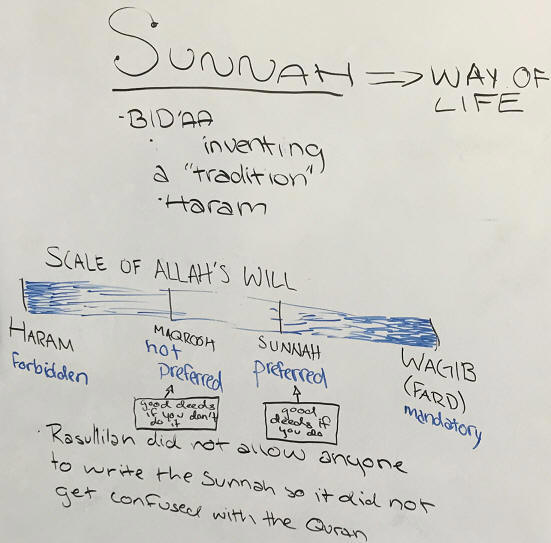 SUNNAH => WAY OF
LIFE
- BID'AA
· inventing
a "tradition"
· Haram
SCALE OF ALLAH'S WILL
HARAM
Forbidden
MAQROOH
not
preferred
SUNNAH
preferred
WAGIB
(FARD)
mandatory
good deeds
if you don't
do it
good
deeds if
you do
· Rasullilah did not allow anyone
to write the Sunnah so it did not
get confused with the Quran